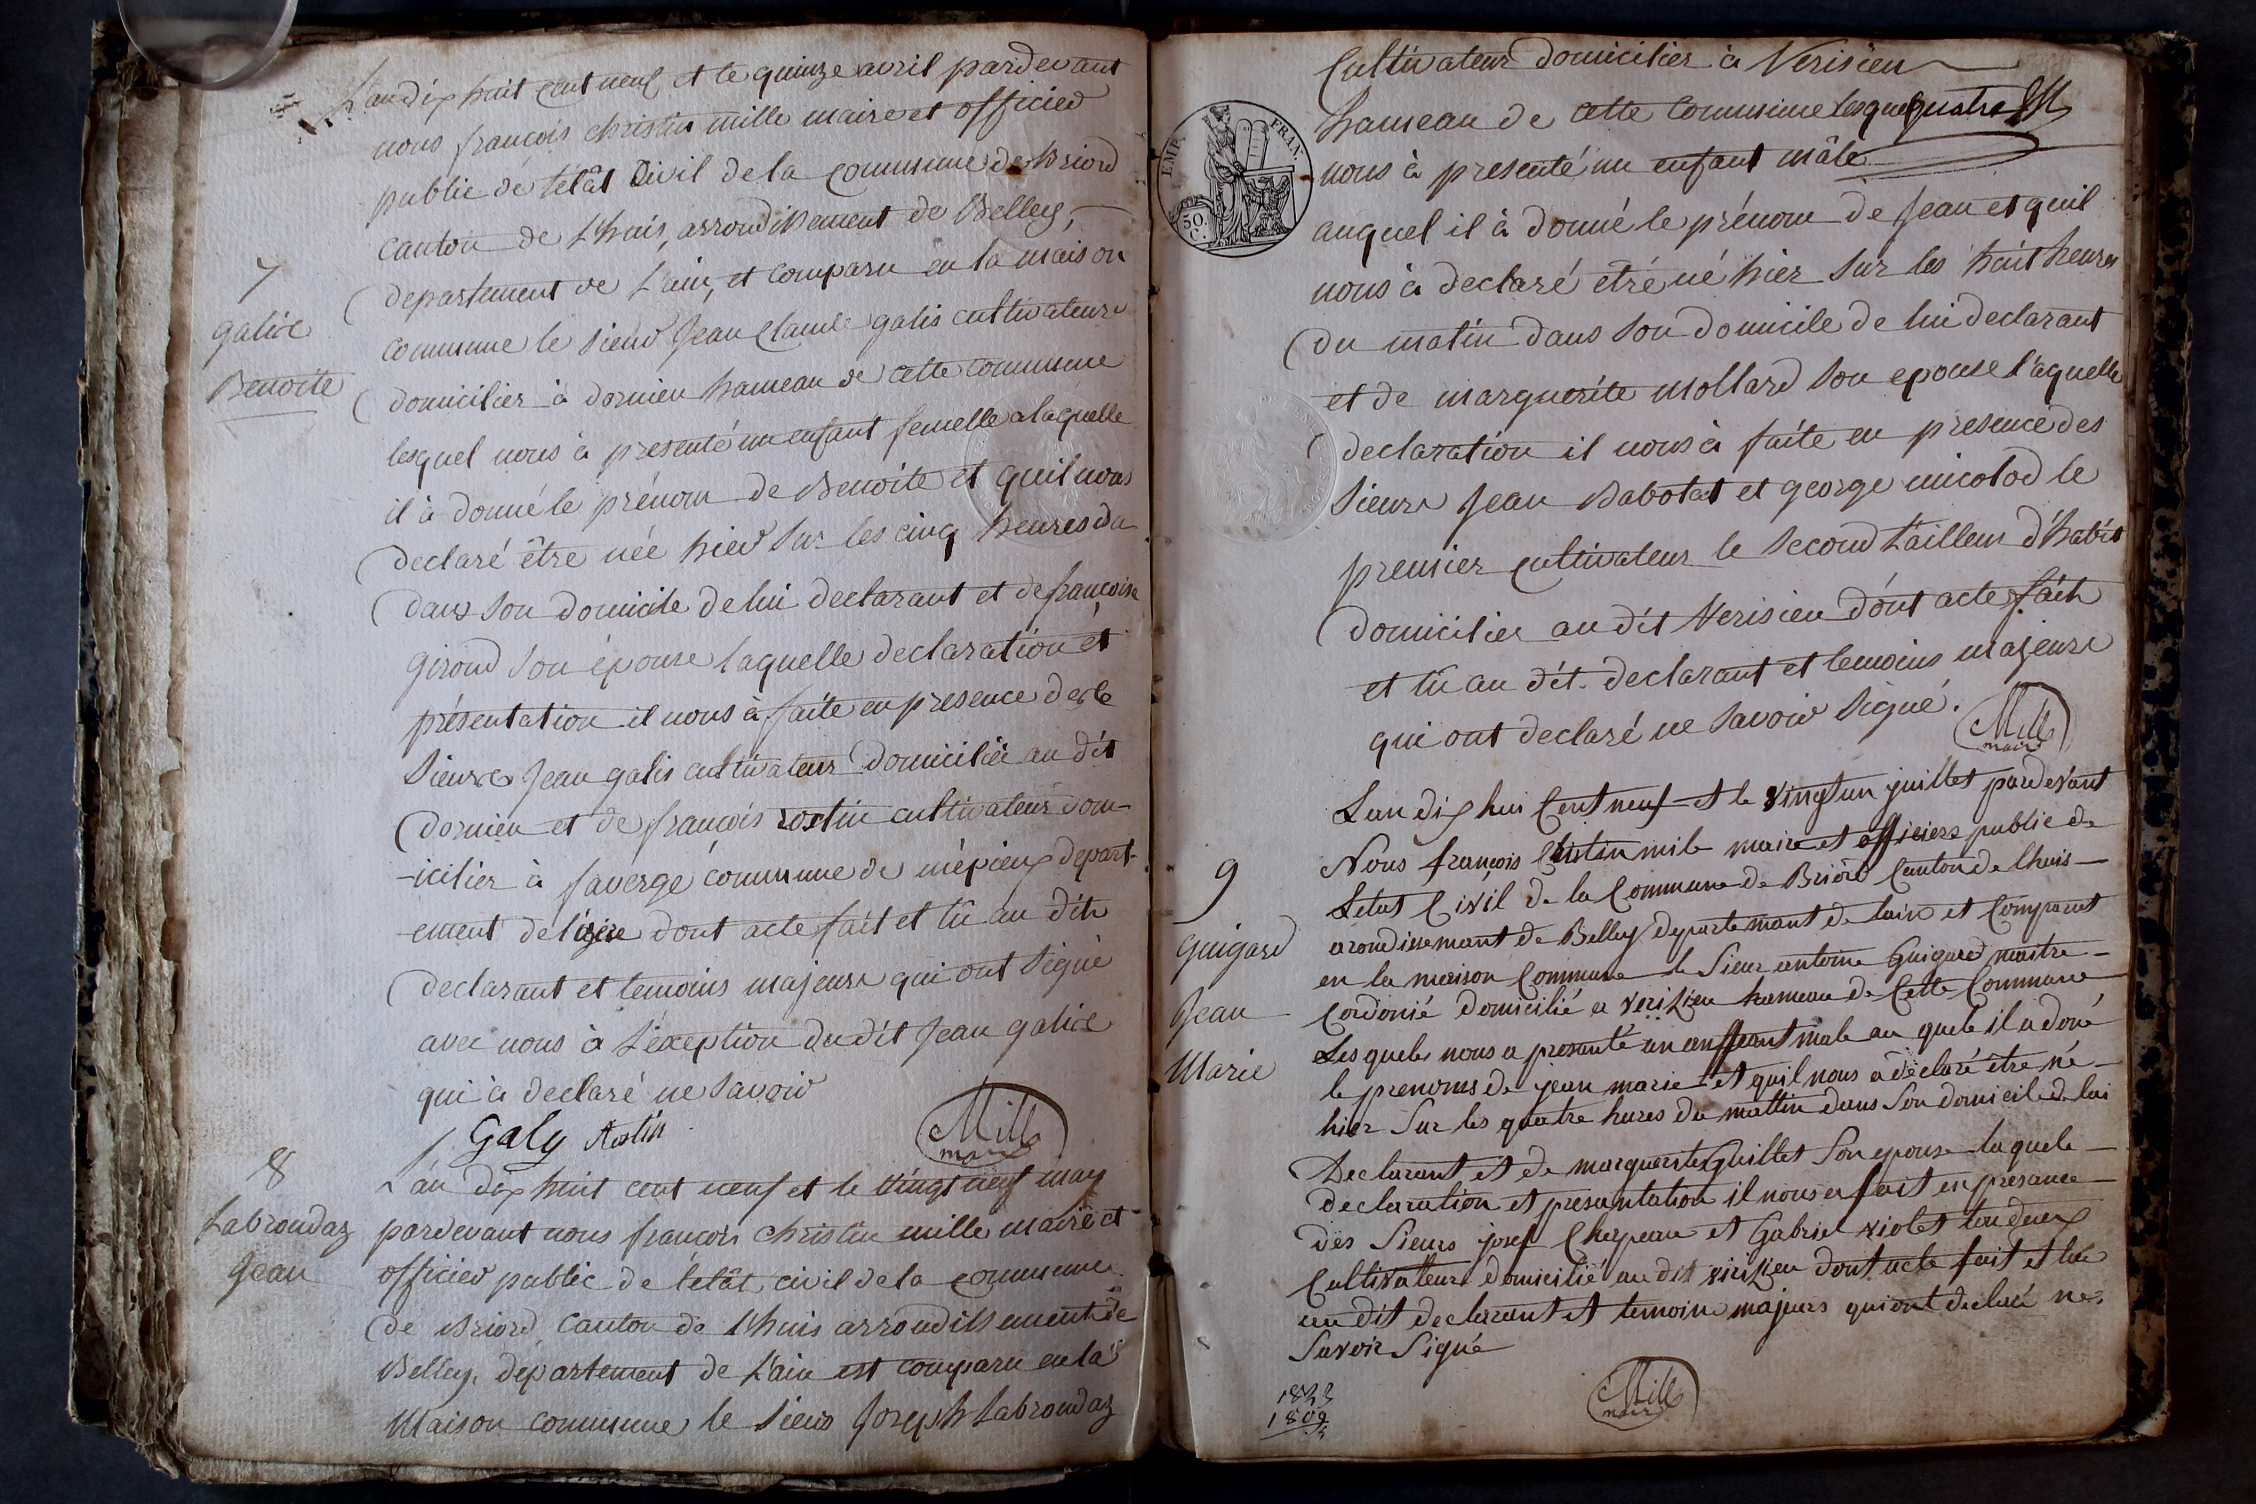 L'an dix huit cent neuf et le quinze avril pardevant
nous francois christin mille maire et officier
public de l'êtât Civil de la commune de Briord
canton de L'huis, arrondissement de Belley,
departement de L'ain, et comparu en la maison
commune le Sieur Jean Claude galis cultivateur
domicilier à dornieu hameau de cette commune
lesquel nous à presenté un enfant femelle a laquelle
il à donné le prénom de Benoite et quil nous
declaré être née hier Sur les cinq heures du
dans Son domicile de lui declarant et de françoise
girond Son épouse laquelle declaration et
présentation il nous à faite en presence de
Sieurs Jean galis cultivateur domicilié au dit
dornieu et de françois rostin cultivateur dom-
-icilier à faverge commune de mépieu depart-
-ement de l'izère dont acte fait et lû au dit
declarant et temoins majeurs qui ont Signé
avec nous à L'éxception du dit Jean galice
qui à declaré ne Savoir
Galy Rostin Mille
maire
7
galice
Benoite
8
Labrondaz
Jean
L'an dix huit cent neuf et le vingt neuf may
pardevant nous francois christin mille maire et
officier public de l'etât civil de la commune
de Briord, canton de Lhuis arrondissement de
Belley, departement de L'ain est comparu en la
Maison commune le Sieur Joseph Labrondaz
Cultivateur domicilier à Verisieu
hameau de cette commune lesquel
nous à presenté un enfant mâle
auquel il à donné le prénom de Jean et quil
nous à declaré etré né hier Sur les huit heures
du matin dans Son domicile de lui declarant
et de marguerite mollard Son epouse l'aquelle
declaration il nous à faite en presence des
Sieurs Jean Babolat et george micolod le
premier cultivateur le Second tailleur d'habit
domicilier au dit Verisieu dont acte fait
et lû au dit declarant et temoins majeurs
qui ont declaré ne Savoir Signé.
Mille
maire
EMP. FRAN.
50.
C.
9
Guigard
Jean
Marie
Lan dix hui Cent neuf et le vingt un juillet pardevant
Nous françois Christin mile maire et officiers public de
Letat Civil de la Commune de Briord Canton de lhuis
arondissemant de Belley departemant de lain et Comparut
en la maison Commune le Sieur antoine Guigard maitre
Cordonié domicilié a verizieu hameau de Cette Commune
Les quels nous a presanté un enffant male au quele il a doné
le prenoms de jean marie et quil nous a déclaré être né
hier Sur les quatre hures du mattin dans Son domicil de lui
Declarant et de marguerite Guillet Son epouse laquele
declaration et presantation il nous a fait en presance
des Sieurs josef Charpeau et Gabriel violet tou deux
Cultivateurs domicilié au dit virizieu dont acte fait et lu
au dit declarant et temoins majeurs qui ont declaré ne
Savoir Signé
Mille
maire
1809